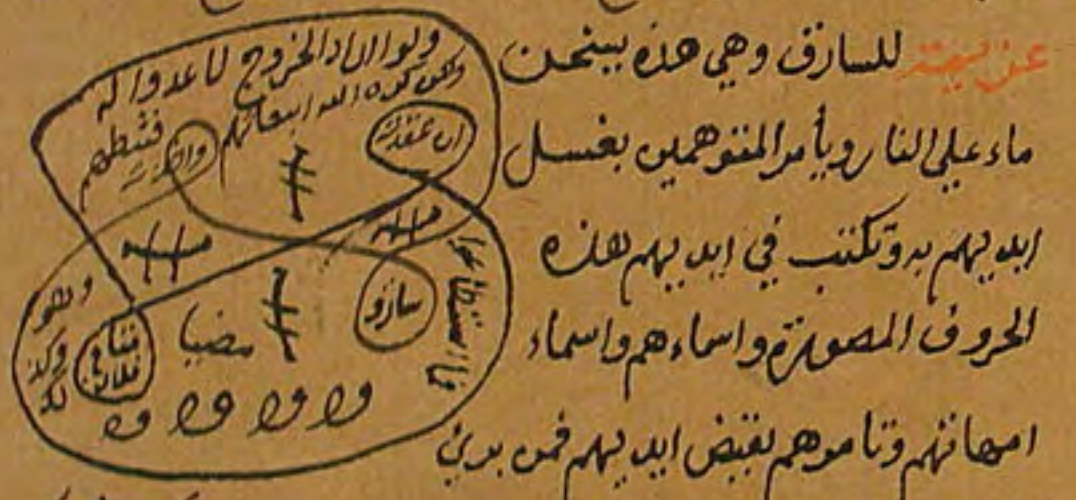 عزيمة للسارق وهي هذه يسخن
ماء على النار ويأمر المتوهمين بغسل
ايديهم به وتكتب في ايديهم هذه
الحروف المصورة واسماءهم واسماء
امهاتهم وتأموهم بقبض ايديهم فمن بري
ولو ارادو الخروج لاعدوا له
ولكن كره الله انبعاثهم
فثبطهم
ان عقدت
سارق
فما استطاعوا
مضيا
فلان
و و و و و